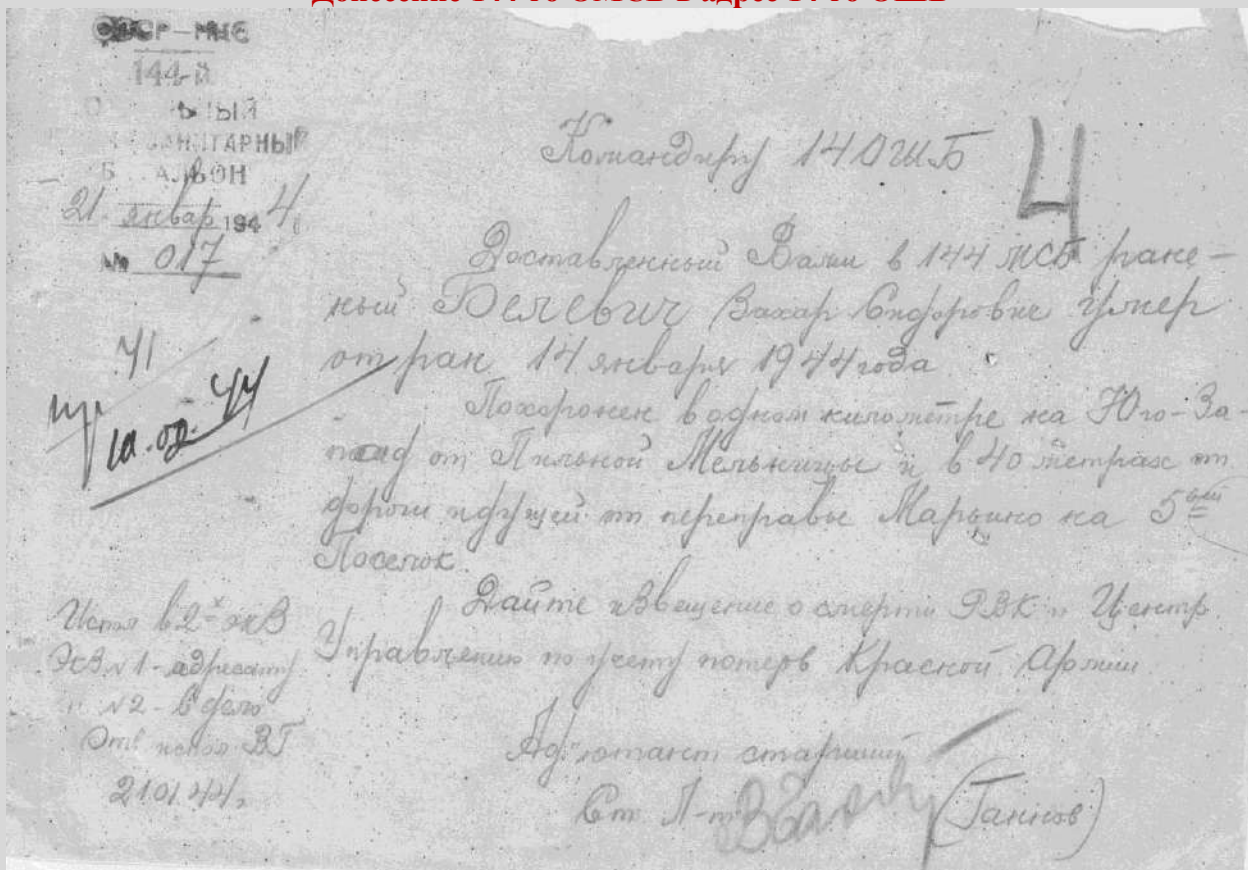 144-й
21 январ 1944
№ 017
Командиру 14 ОШБ
4
Доставленный Вами в 144 МСБ ране-
ный Белевич Захар Сидорович умер
от ран 14 января 1944 года.
Похоронен в одном километре на Юго-За-
пад от Пильной Мельницы и в 40 метрах от
дороги идущей от переправы Марьино на 5ый
Поселок.
Дайте извещение о смерти РВК и Центр.
Управлению по учету потерь Красной Армии
Адъютант старший
Ст. Л-т (Ганнов)
10.02.44
Экз № 1 - адресату
№ 2 - в дело
210144